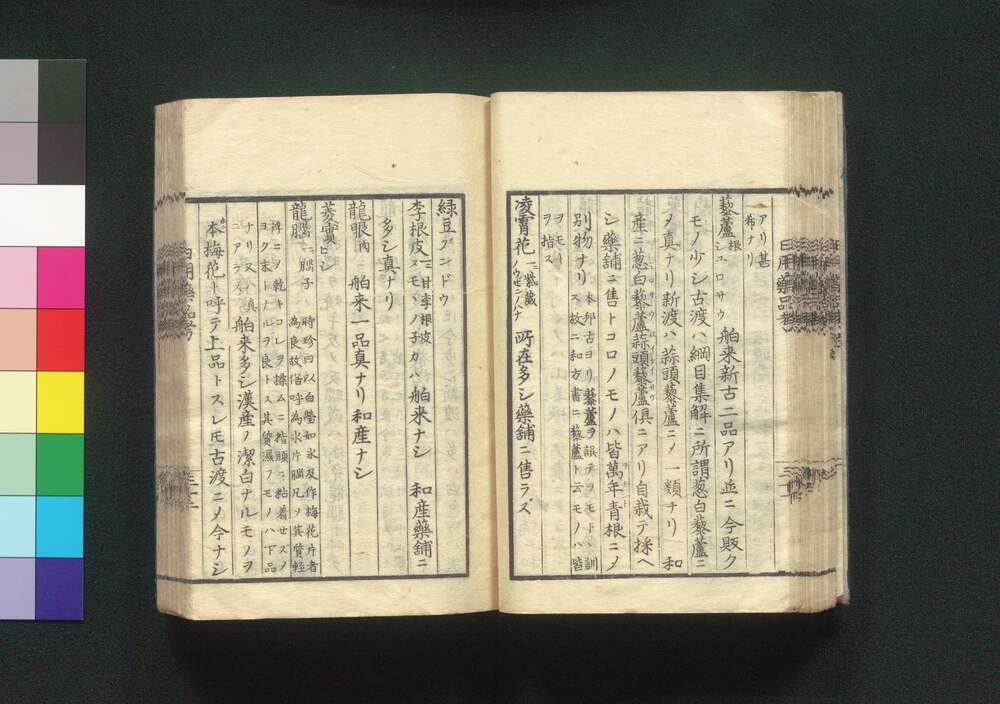 アリ甚
希ナリ
藜蘆根 シユロサウ 舶来新古二品アリ並ニ今販ク
モノ少シ古渡ハ綱目集解ニ所謂葱白藜蘆ニ
ノ真ナリ新渡ハ蒜頭藜蘆ニメ一類ナリ 和
産ニ葱白藜蘆蒜頭藜蘆倶ニアリ自栽テ採ヘ
シ藥舖ニ售トコロノモノハ皆萬年青根ニメ
別物ナリ 本邦古ヨリ藜蘆ヲ誤テヲモトヽ訓
ス故ニ和方書ニ藜蘆ト云モノハ皆
ヲモト
ヲ指ス
凌霄花 一紫葳 ノウゼンノハナ 所在多シ藥舖ニ售ラズ
綠豆 ブンドウ
李根皮 一甘李根皮 スモヽノ子カハ 舶来ナシ 和産藥舖ニ
多シ真ナリ
龍眼肉 舶来一品真ナリ和産ナシ
菱實 ヒシ
龍腦 一腦子 時珍曰以白瑩如氷及作梅花片者
為良故俗呼為氷片腦凡ソ其質軽
ヨク末トナルヲ良トス其質濕フモノハ下品
ナリ又真
ニアラズ 舶来多シ漢産ノ潔白ナルモノヲ
本梅花ト呼テ上品トスレ𪜈古渡ニメ今ナシ
日用藥品考
日用藥品考